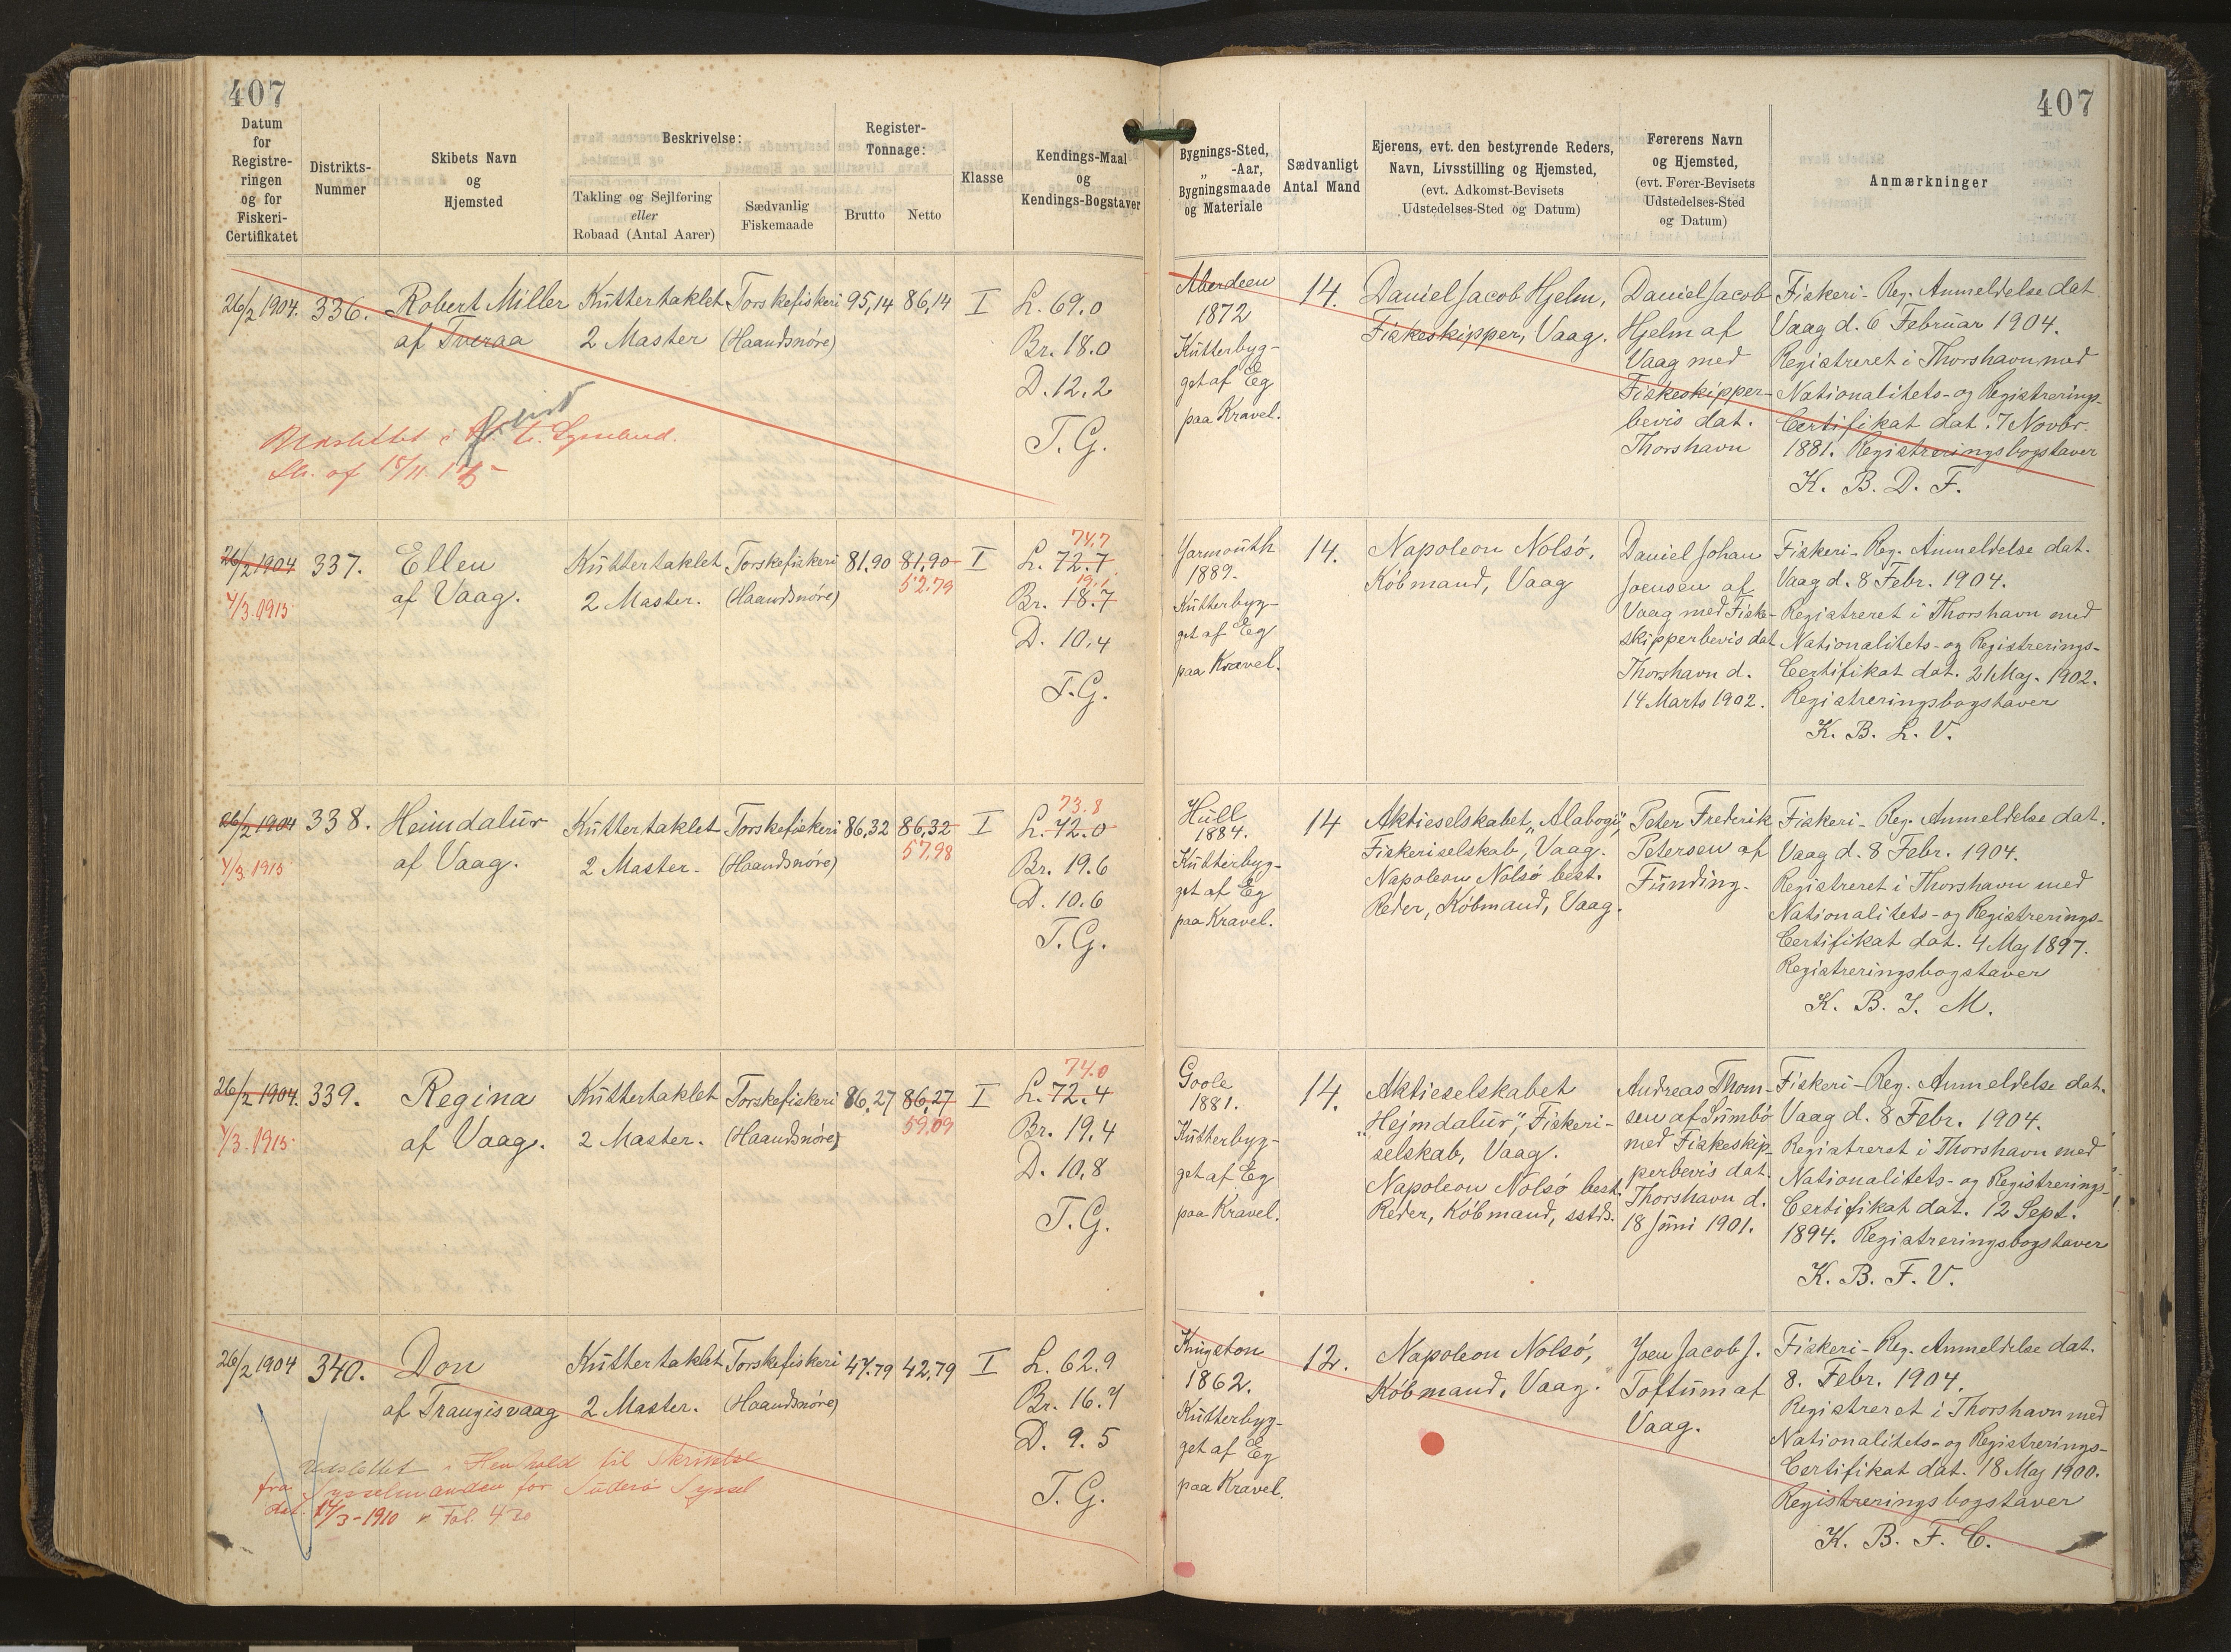 407
407
Datum
for
Registre-
ringen
og for
Fiskeri-
Certifikatet
Distrikts-
Nummer
Skibets Navn
og
Hjemsted
Beskrivelse:
Takling og Sejlføring
eller
Robaad (Antal Aarer)
Sædvanlig
Fiskemaade
Register-
Tonnage:
Brutto
Netto
Klasse
Kendings-Maal
og
Kendings-Bogstaver
Bygnings-Sted,
„ -Aar,
Bygningsmaade
og Materiale
Sædvanligt
Antal Mand
Ejerens, evt. den bestyrende Reders,
Navn, Livsstilling og Hjemsted,
(evt. Adkomst-Bevisets
Udstedelses-Sted og Datum)
Førerens Navn
og Hjemsted,
(evt. Fører-Bevisets
Udstedelses-Sted
og Datum)
Anmærkninger
26/2 1904.
336.
Robert Miller
af Tveraa
Kuttertaklet
2 Master
Torskefiskeri
(Haandsnøre)
95,14
86,14
I
L. 69.0
Br. 18.0
D. 12.2
T. G.
Aberdeen
1872
Kutterbyg-
get af Eg
paa Kravel.
14.
Daniel Jacob Hjelm,
Fiskeskipper, Vaag.
Daniel Jacob
Hjelm af
Vaag med
Fiskeskipper-
bevis dat.
Thorshavn
Fiskeri-Reg. Anmeldelse dat.
Vaag d. 6 Februar 1904.
Registreret i Thorshavn med
Nationalitets- og Registrerings-
Certifikat dat. 7 Novbr.
1881. Registreringsbogstaver
K. B. D. F.
26/2 1904
4/3. 1915.
337.
Ellen
af Vaag.
Kuttertaklet
2 Master.
Torskefiskeri
(Haandsnøre)
81.90
81,90
52.79
I
74,7
L. 72.7
19,1
Br. 18.7
D. 10,4
T. G.
Yarmouth
1889.
Kutterbyg-
get af Eg
paa Kravel.
14.
Napoleon Nolsø,
Købmand, Vaag
Daniel Johan
Joensen af
Vaag med Fiske-
skipperbevis dat
Thorshavn d.
14 Marts 1902.
Fiskeri-Reg. Anmeldelse dat.
Vaag d. 8 Febr. 1904.
Registreret i Thorshavn med
Nationalitets- og Registrerings-
Certifikat dat. 21 Maj. 1902.
Registreringsbogstaver
K. B. L. V.
26/2 1904
4/3. 1915
338.
Heimdalur
af Vaag.
Kuttertaklet
2 Master.
Torskefiskeri
(Haandsnøre)
86,32
86,32
57,98
I
73.8
L. 72.0
Br. 19.6
D. 10.6
T. G.
Hull
1884.
Kutterbyg-
get af Eg
paa Kravel.
14
Aktieselskabet „Alabogi",
Fiskeriselskab, Vaag.
Napoleon Nolsø best.
Reder, Købmand, Vaag.
Peter Frederik
Petersen af
Funding.
Fiskeri-Reg. Anmeldelse dat.
Vaag d. 8 Febr. 1904.
Registreret i Thorshavn med
Nationalitets- og Registrerings-
Certifikat dat. 4 Maj 1897.
Registreringsbogstaver
K. B. J. M.
26/2 1904.
4/3. 1915.
339.
Regina
af Vaag.
Kuttertaklet
2 Master.
Torskefiskeri
(Haandsnøre)
86,27
86,27
59,09
I
74.0
L. 72.4
Br. 19,4
D. 10,8
T. G.
Goole
1881.
Kutterbyg-
get af Eg
paa Kravel.
14.
Aktieselskabet
„Hejmdalur", Fiskeri-
selskab, Vaag.
Napoleon Nolsø best.
Reder, Købmand, sstds.
Andreas Thom-
sen af Sumbø
med Fiskeskip-
perbevis dat.
Thorshavn d.
18 Juni 1901.
Fiskeri-Reg. Anmeldelse dat.
Vaag d. 8 Febr. 1904.
Registreret i Thorshavn med
Nationalitets- og Registrerings-
Certifikat dat. 12 Sept.
1894. Registreringsbogstaver
K. B. F. V.
26/2 1904
340.
Don
af Trangisvaag
Kuttertaklet
2 Master.
Torskefiskeri
(Haandsnøre)
42,79
I
L. 62.9
Br. 16.7
D. 9.5
T. G.
Udslettet i Henhold til Skrivelse
fra Sysselmanden for Suderø Syssel
dat. 14/3-1910 Fol. 420
Kingston
1862.
Kutterbyg-
get af Eg
paa Kravel.
12.
Napoleon Nolsø,
Købmand, Vaag.
Joen Jacob J.
Toftum af
Vaag.
Fiskeri-Reg. Anmeldelse dat.
8. Febr. 1904.
Registreret i Thorshavn med
Nationalitets- og Registrerings-
Certifikat dat. 18 Maj 1900.
Registreringsbogstaver
K. B. F. C.